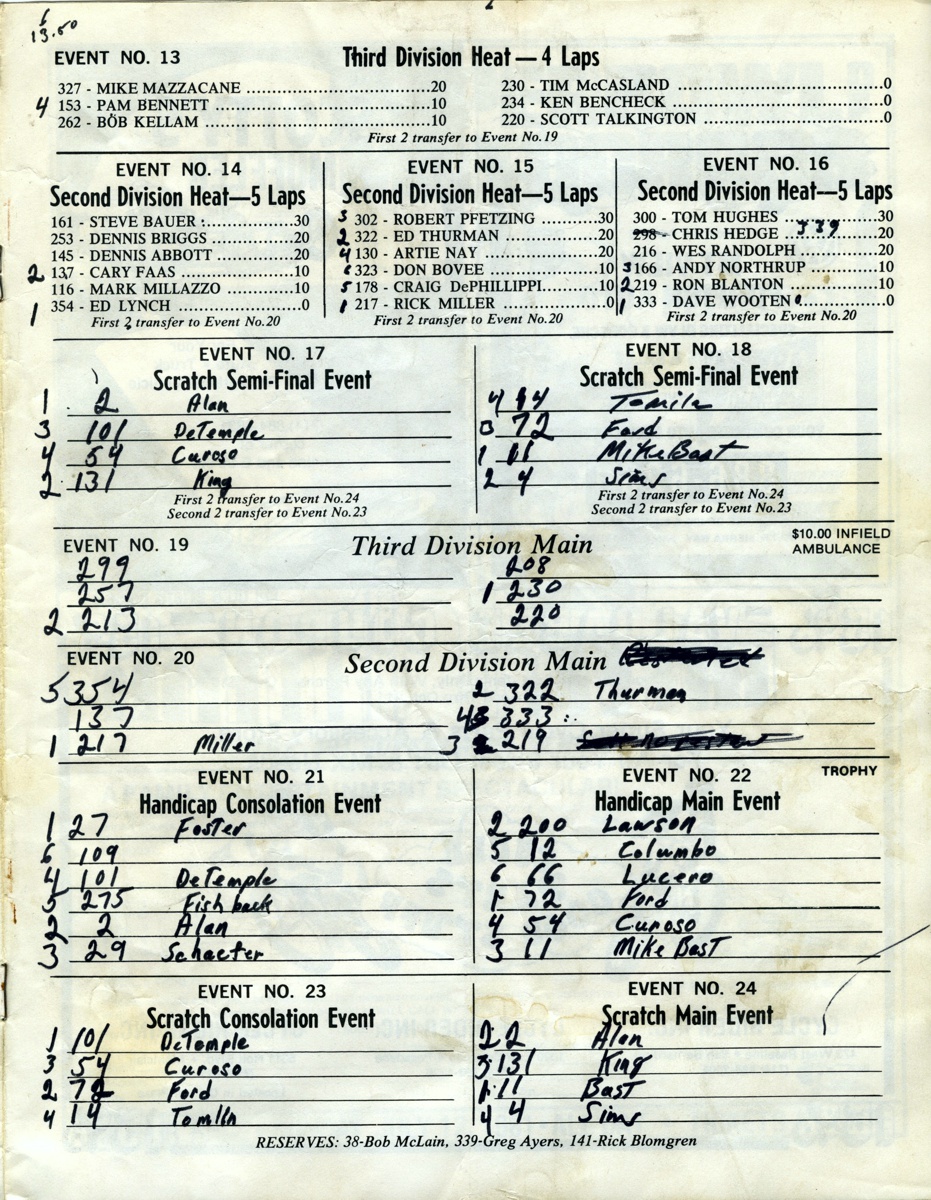 13.50
EVENT NO. 13 Third Division Heat — 4 Laps
327 - MIKE MAZZACANE ..........20
4 153 - PAM BENNETT ..........10
262 - BOB KELLAM ..........10
230 - TIM McCASLAND ..........0
234 - KEN BENCHECK ..........0
220 - SCOTT TALKINGTON ..........0
First 2 transfer to Event No.19
EVENT NO. 14
Second Division Heat—5 Laps
161 - STEVE BAUER ..........30
253 - DENNIS BRIGGS ..........20
145 - DENNIS ABBOTT ..........20
2 137 - CARY FAAS ..........10
116 - MARK MILLAZZO ..........10
1 354 - ED LYNCH ..........0
First 2 transfer to Event No.20
EVENT NO. 15
Second Division Heat—5 Laps
3 302 - ROBERT PFETZING ..........30
2 322 - ED THURMAN ..........20
4 130 - ARTIE NAY ..........20
6 323 - DON BOVEE ..........10
5 178 - CRAIG DePHILLIPPI ..........10
1 217 - RICK MILLER ..........0
First 2 transfer to Event No.20
EVENT NO. 16
Second Division Heat—5 Laps
300 - TOM HUGHES ..........30
298 - CHRIS HEDGE 339 ..........20
216 - WES RANDOLPH ..........20
3 166 - ANDY NORTHRUP ..........10
2 219 - RON BLANTON ..........10
1 333 - DAVE WOOTEN ..........0
First 2 transfer to Event No.20
EVENT NO. 17
Scratch Semi-Final Event
1 2 Alan
3 101 DeTemple
4 54 Curoso
2 131 King
First 2 transfer to Event No.24
Second 2 transfer to Event No.23
EVENT NO. 18
Scratch Semi-Final Event
4 14 Tomlin
3 72 Ford
1 11 Mike Bast
2 4 Sims
First 2 transfer to Event No.24
Second 2 transfer to Event No.23
EVENT NO. 19 Third Division Main $10.00 INFIELD
AMBULANCE
299 208
257 1 230
2 213 220
EVENT NO. 20 Second Division Main
5 354 2 322 Thurman
137 4 333
1 217 Miller 3 219
EVENT NO. 21
Handicap Consolation Event
1 27 Foster
6 109
4 101 DeTemple
5 275 Fishback
2 2 Alan
3 29 Schaefer
EVENT NO. 22 TROPHY
Handicap Main Event
2 200 Lawson
5 12 Columbo
6 66 Lucero
1 72 Ford
4 54 Curoso
3 11 Mike Bast
EVENT NO. 23
Scratch Consolation Event
1 101 DeTemple
3 54 Curoso
2 72 Ford
4 14 Tomlin
EVENT NO. 24
Scratch Main Event
2 2 Alan
3 131 King
1 11 Bast
4 4 Sims
RESERVES: 38-Bob McLain, 339-Greg Ayers, 141-Rick Blomgren